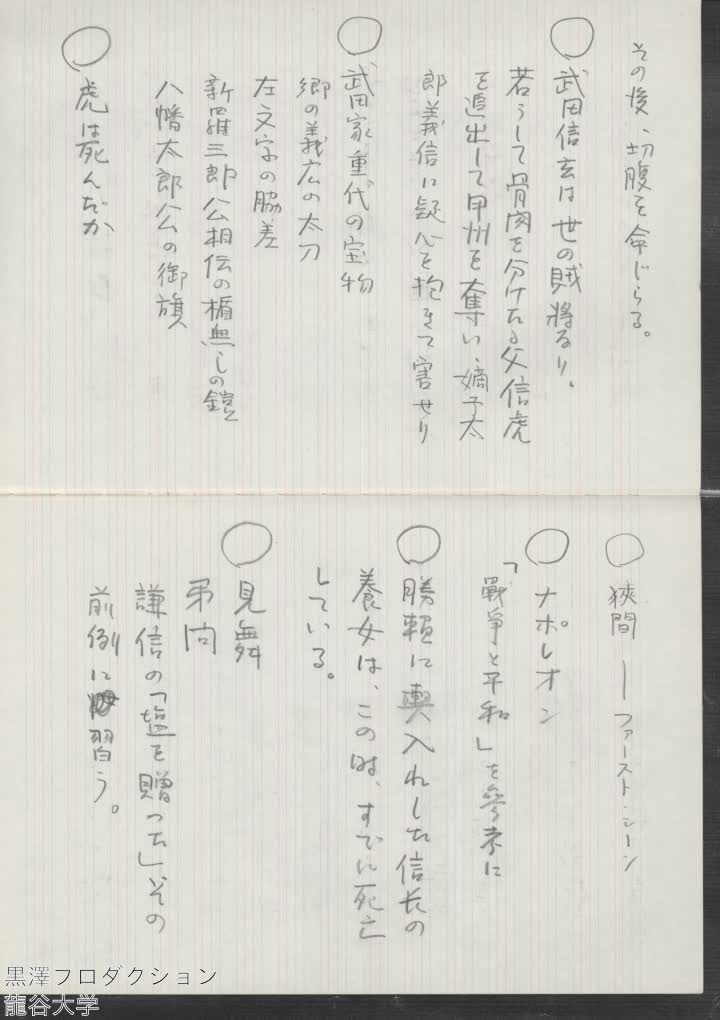 その後、切腹を命じらる。
○武田信玄は世の賊将なり、
若うして骨肉を分けたる父信虎
を追出して甲州を奪い、嫡子太
郎義信に疑心を抱きて害せり
○武田家重代の宝物
郷の義広の太刀
左文字の脇差
新羅三郎公相伝の楯無しの鎧
八幡太郎公の御旗
○虎は死んだか
○狭間―ファースト・シーン
○ナポレオン
「戰爭と平和」を參考に
○勝頼に輿入れした信長の
養女は、この時、すでに死亡
している。
○見舞
弔問
謙信の「塩を贈った」その
前例に習う。
黒澤プロダクション
龍谷大学